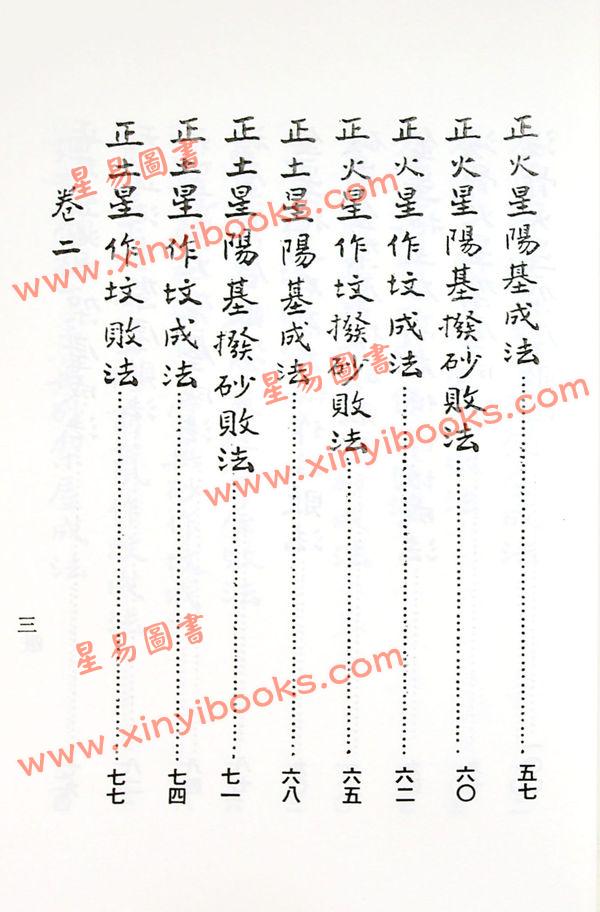 正火星陽基成法……五七
正火星陽基撥砂敗法……六〇
正火星作坟成法……六二
正火星作坟撥砂敗法……六五
正土星陽基成法……六八
正土星陽基撥砂敗法……七一
正土星作坟成法……七四
正土星作坟敗法……七七
卷二
三
星易圖書
www.xinyibooks.com
星易圖書
www.xinyibooks.com
星易圖書
www.xinyibooks.com